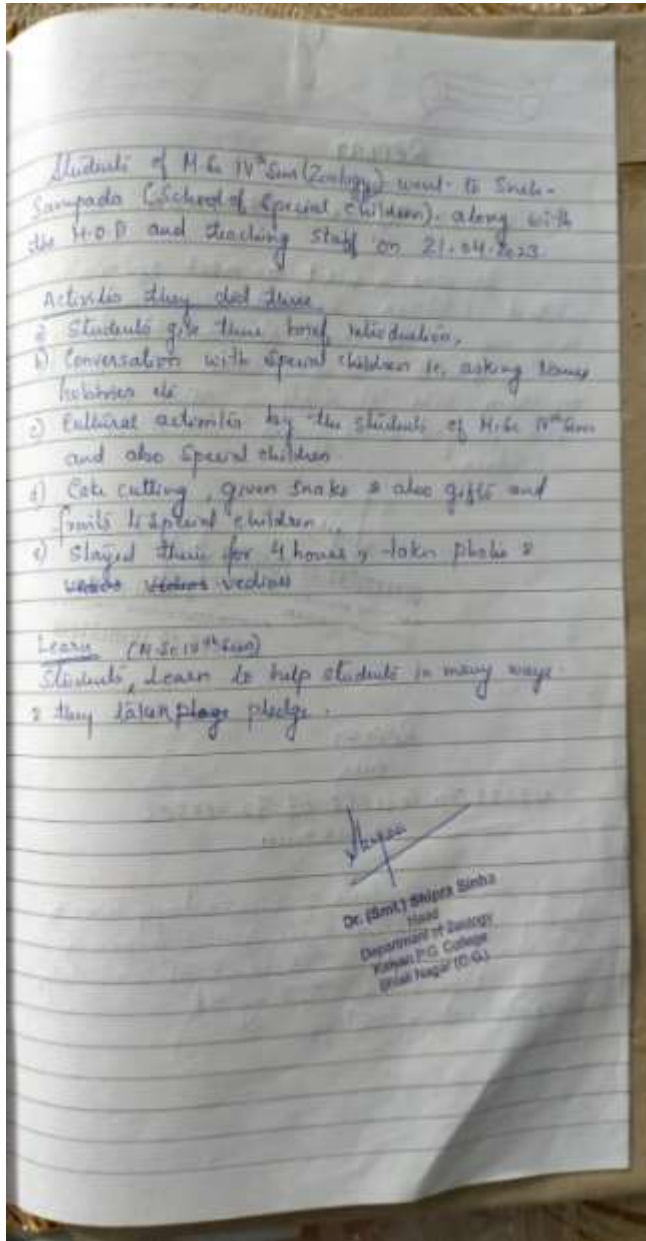 Students of M.Sc IVth Sem (Zoology) went to Sneh-
Sampada (School of Special Children). along with
the H.O.D and teaching staff on 21.04.2023
Activities they did there
a) Students give their brief introduction,
b) Conversation with Special children ie, asking Name,
hobbies etc
c) Cultural activities by the students of M.Sc IVth Sem
and also Special children
d) Cake cutting, given snaks & also gifts and
fruits to special children
e) Stayed there for 4 hours, taken photos &
vedios
Learn (M.Sc IVth Sem)
Students, Learn to help students in many ways.
& they taken pledge.
Dr. (Smt.) Shipra Sinha
Head
Department of Zoology
Kalyan P.G. College
Bhilai Nagar (C.G.)